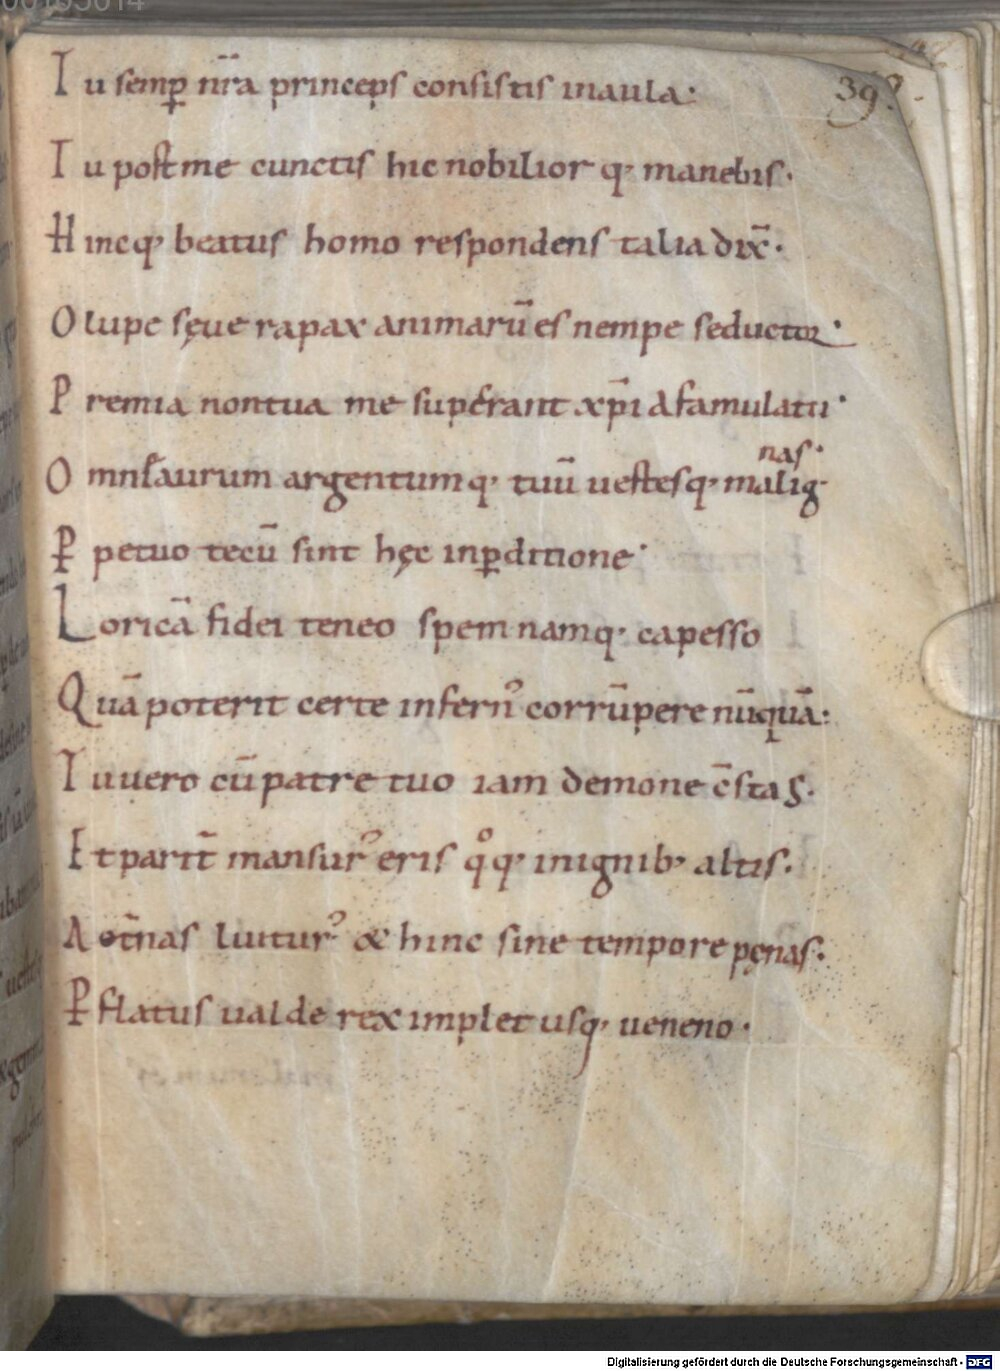 00105014
39
Tu semꝑ nr̅a princeps consistis inaula·
Tu postme cunctis hic nobilior q; manebis·
Hincq; beatus homo respondens talia dix̅·
O lupe sęue rapax animarū es nempe seductor·
Premia nontua me superant xp̅i a famulatu·
nas·
Omne aurum argentumq; tuū uestesq; malig
Ꝑpetuo tecū sint hęc inꝑditione·
Loricā fidei teneo spem namq; capesso
Quā poterit certe infernꝰ corrūpere nūquā:
Tu uero cū patre tuo iam demone c̅stas·
Et parit̅ mansurꝰ eris qͦq; inignib; altis·
A ot̅nas luiturꝰ & hinc sine tempore pęnas·
Ꝑflatus ualde rex implet usq; ueneno·
Digitalisierung gefördert durch die Deutsche Forschungsgemeinschaft - DFG